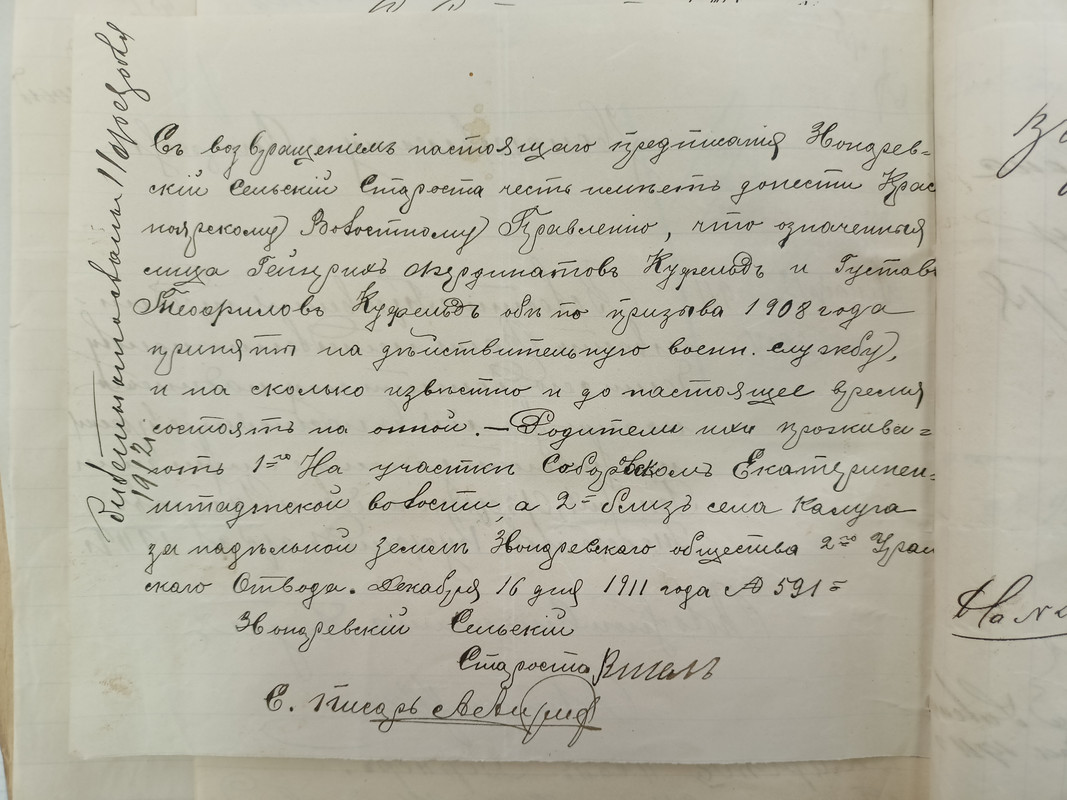 Съ возвращеніемъ настоящаго предписанія Зондрев=
скій Сельскій Староста честь имѣетъ донести Крас
ноярскому Волостному Правленію, что означенныя
лица Гейнрихъ Фердинатовъ Куфельдъ и Густавъ
Теофиловъ Куфельдъ оба по призыва 1908 года
приняты на дѣйствительную воен. службу,
и на сколько извѣстно и до настоящее время
состоятъ на онной. — Родители ихъ прожива=
ютъ 1го На участки Соборскомъ Екатеринен=
штадтской волости, а 2= близъ села Калуга
за надѣльной землѣ Зондревскаго общества 2го Урал
скаго Отвода. Декабря 16 дня 1911 года № 591=
Зондревскій Сельскій
Староста
С. писарь
1912
На №